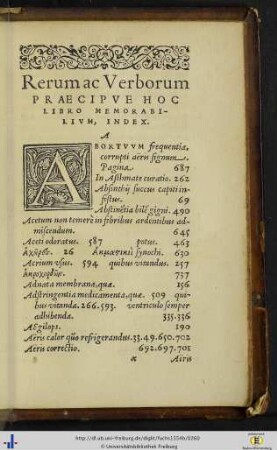 Rerum ac Verborum
PRAECIPVE HOC
LIBRO MEMORABI-
LIVM, INDEX.
A
ABORTVVM frequentia,
corrupti aëris signum.
Pagina 687
In Asthmate curatio. 262
Absinthij succus capiti in-
festus. 69
Abstinētia bilē gigni. 490
Acetum non temerè in febribus ardentibus ad-
miscendum. 645
Aceti odoratus. 587 potus. 463
26 synochi. 630
Acrium usus. 594 quibus vitandus. 257
737
Adnata membrana, quæ. 156
Adstringentia medicamenta, quæ. 509 qui-
bus vitanda. 266. 593. ventriculo semper
adhibenda. 335. 336
Aegilops. 190
Aëris calor quo refrigerandus. 33. 49. 650. 702
Aëris correctio. 692. 697. 701
a Aëris
http://dl.ub.uni-freiburg.de/diglit/fuchs1554b/0260
© Universitätsbibliothek Freiburg